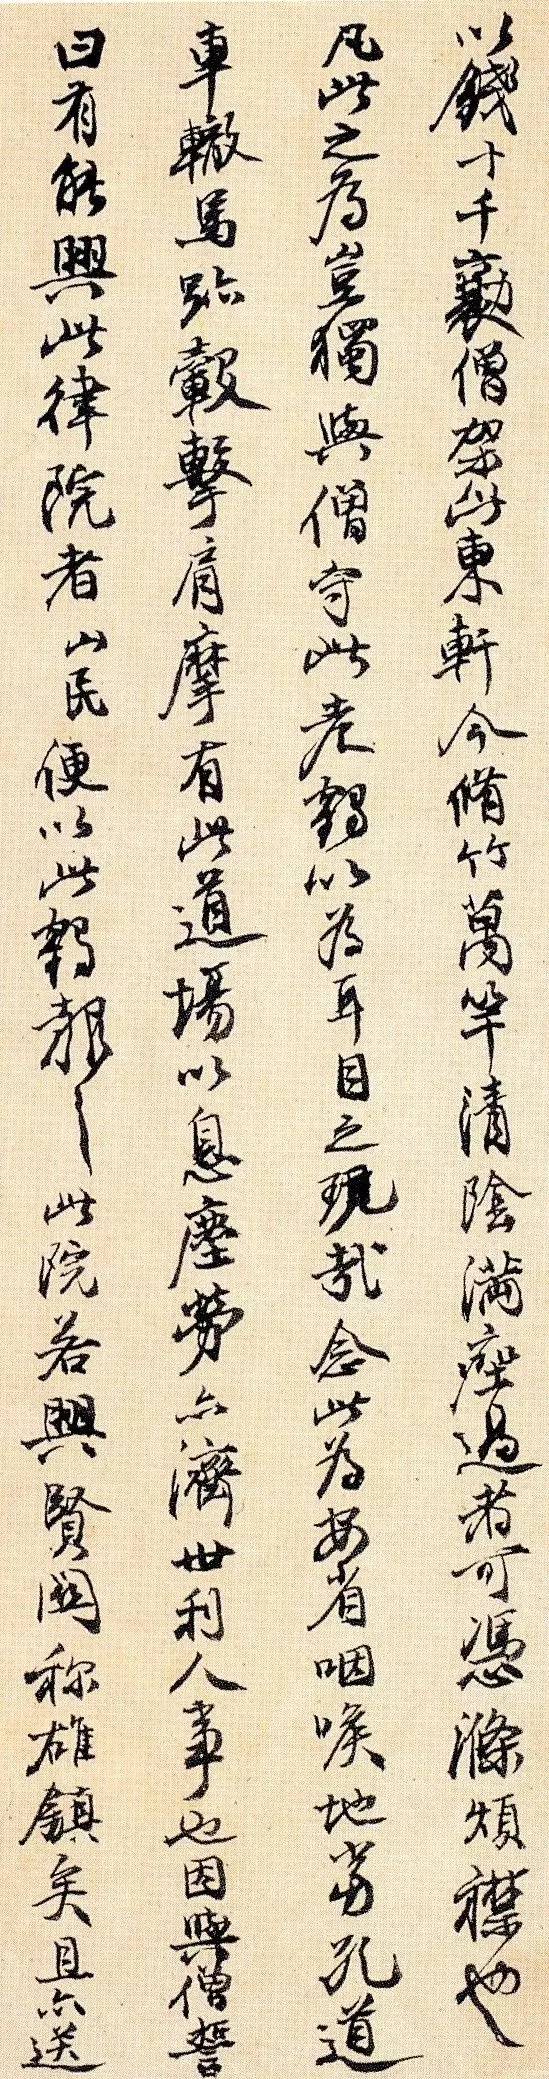 以錢十千勸僧架此東軒今脩竹萬竿清陰滿座過者可憑滌煩襟也
凡此之為豈獨與僧守此老鶴以為耳目之玩哉念此為安省咽喉地當孔道
車轍馬跡轂擊肩摩有此道場以息塵勞亦濟世利人事也因與僧誓
曰有能興此律院者山民便以此鶴報之此院若興賢關称雄鎮矣且亦送